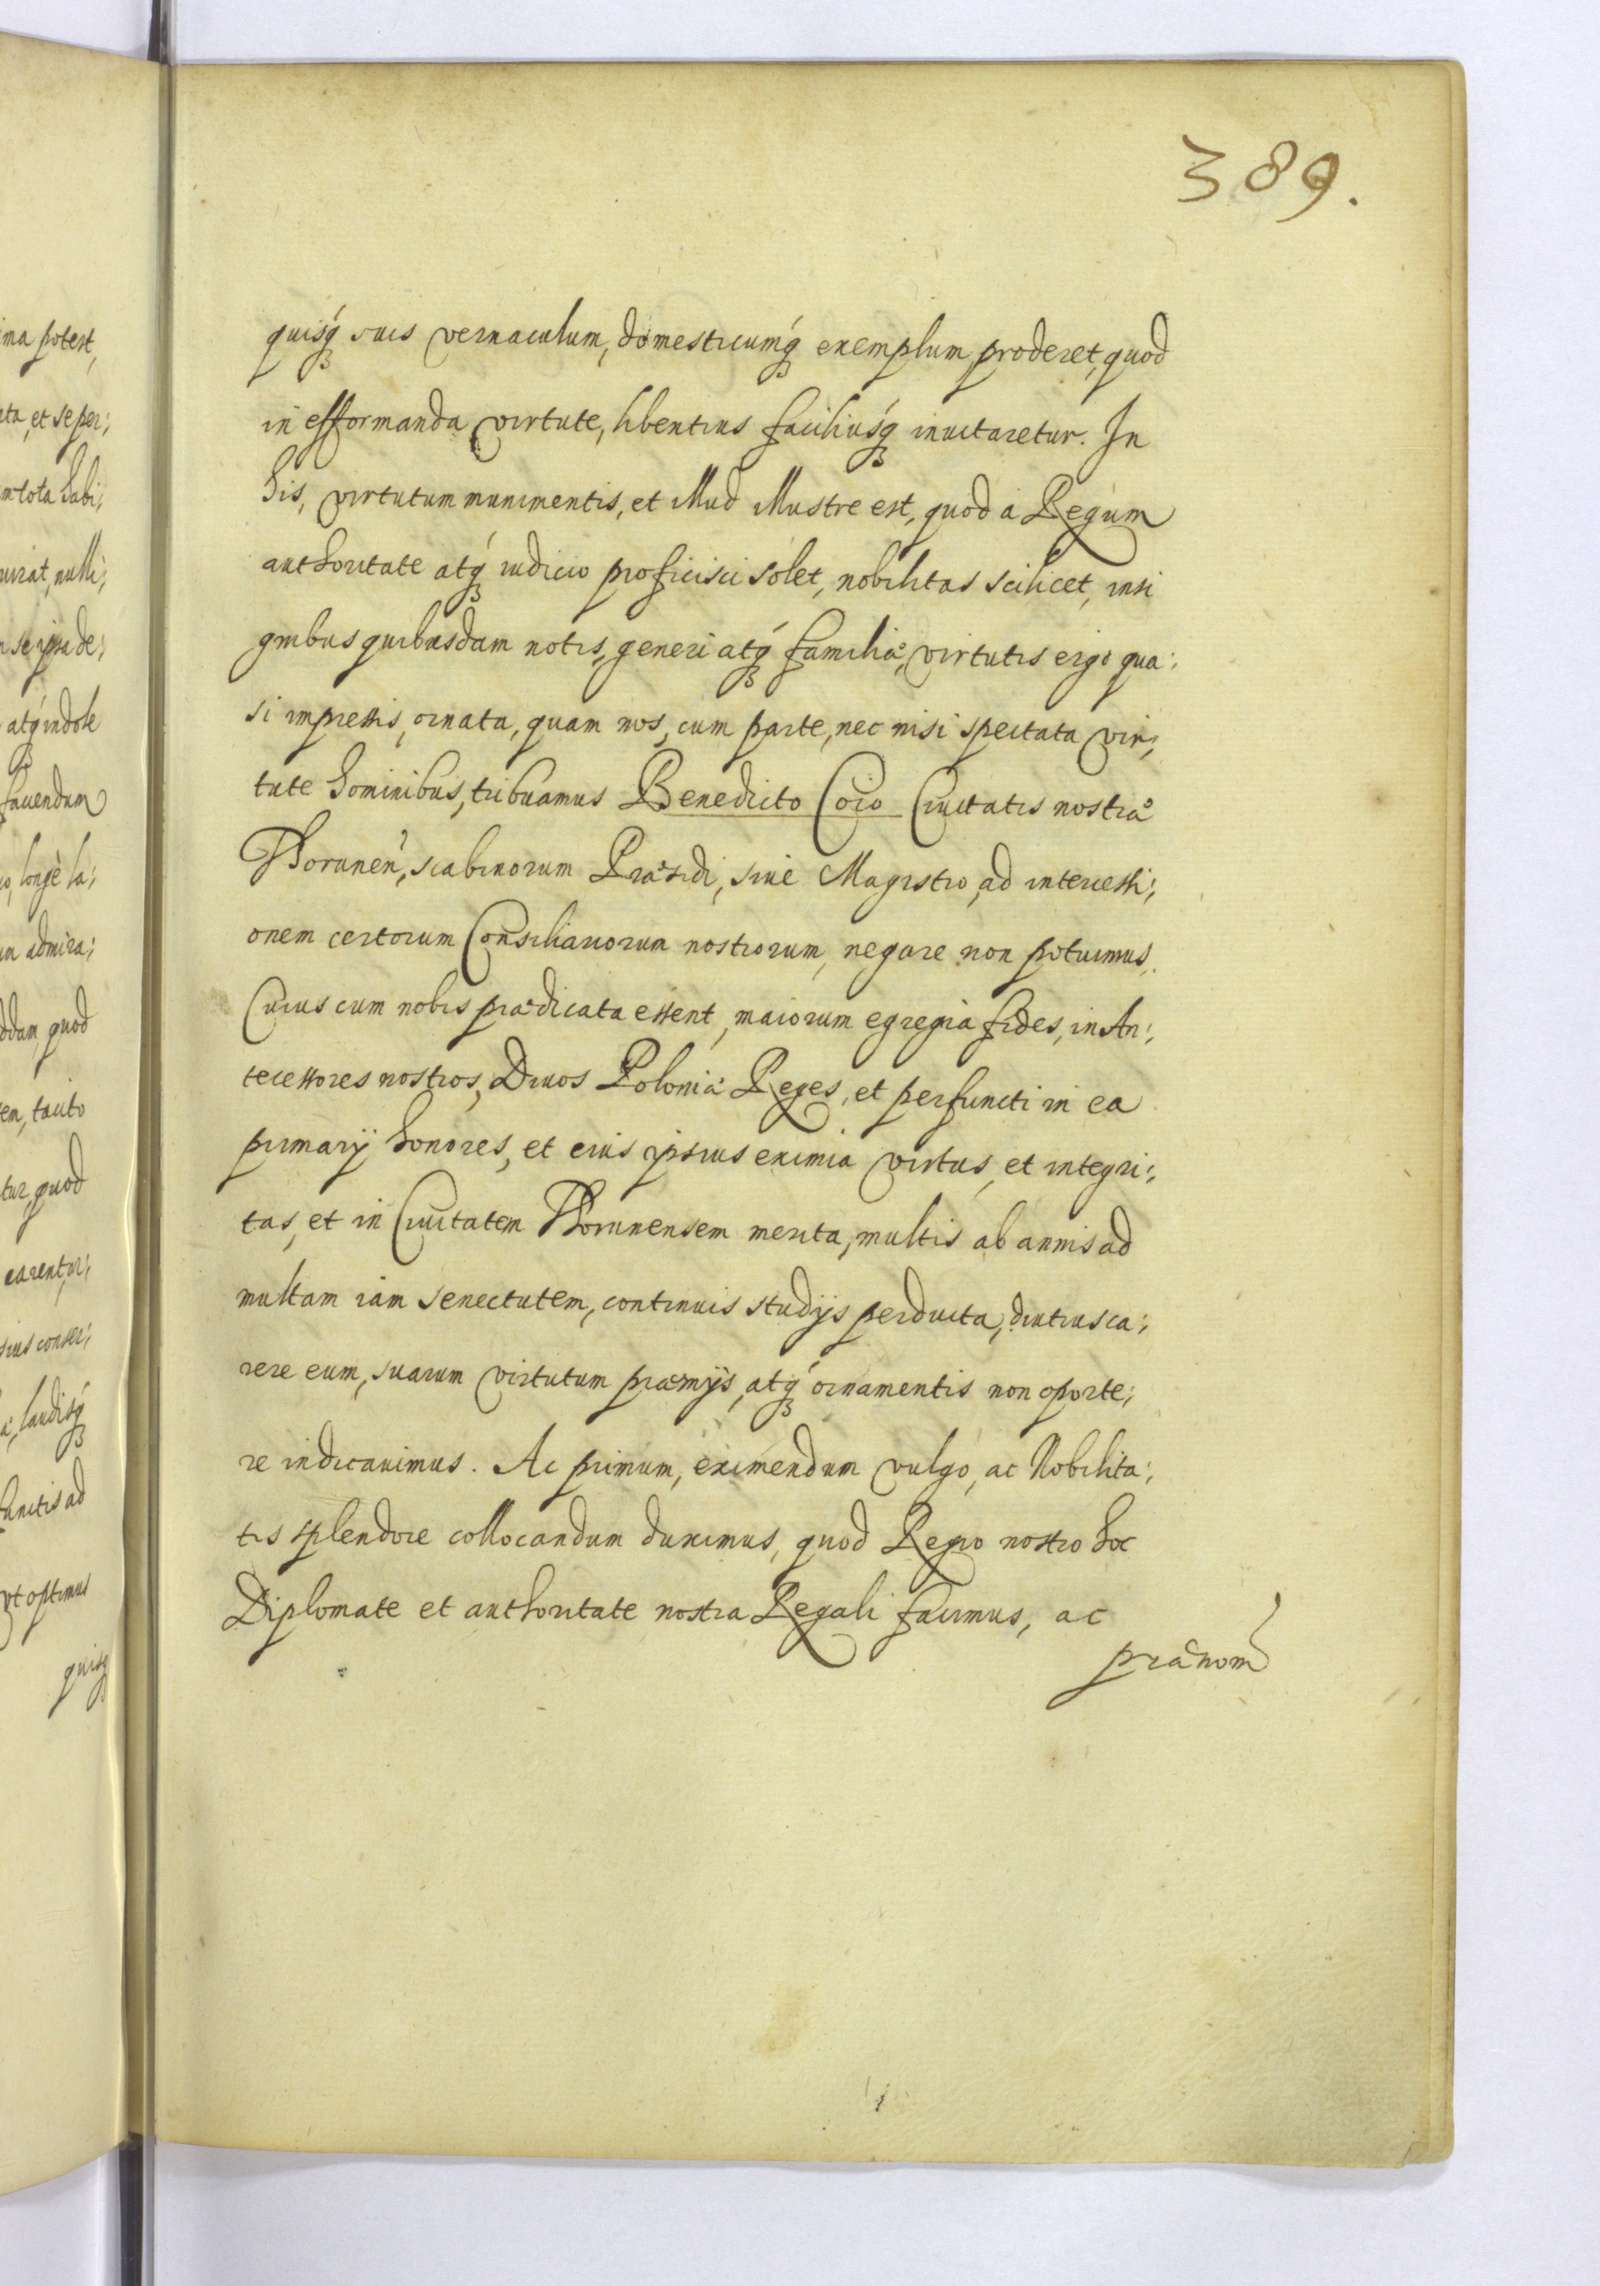 389.
quisq́ꝫ suis vernaculum, domesticumq́ꝫ exemplum proderet, quod
in efformanda virtute, libentius faciliusq́ꝫ inuitaretur. In
his, virtutum munimentis, et illud illustre est, quod à Regum
authoritate atq́ꝫ iudicio proficisci solet, nobilitas scilicet, insi
gnibus quibusdam notis, generi atq́ꝫ familiæ, virtutis ergo qua:
si impressis, ornata, quam nos, cum parte, nec nisi spectata vir:
tute hominibus, tribuamus Benedicto Coio Ciuitatis nostræ
Thorunen̄, scabinorum Præsidi, siue Magistro, ad intercessi:
onem certorum Consiliariorum nostrorum, negare non potuimus.
Cuius cum nobis prædicata essent, maiorum egregia fides, in An:
tecessores nostros, Diuos Poloniæ Reges, et perfuncti in ea
primarij honores, et eius ipsius eximia virtus, et integri:
tas, et in Ciuitatem Thorunensem merita, multis ab annis ad
multam iam senectutem, continuis studijs perducta, diutius ca:
rere eum, suarum virtutum præmijs, atq́ꝫ ornamentis non oporte:
re iudicauimus. Ac primum, eximendum vulgo, ac Nobilita:
tis splendore collocandum duximus, quod Regio nostro hoc
Diplomate et authoritate nostra Regali facimus, ac
prænom
ima potest,
ta, et se per:
tota habi:
uirat, nulli:
se ipsa de:
atq́ꝫ indole
fauendum
longè la:
admira:
ddam quod
tacito
tur, quod
carentur:
sius conser:
laudisq́ꝫ
cunctis ad
vt optimus
quisqꝫ